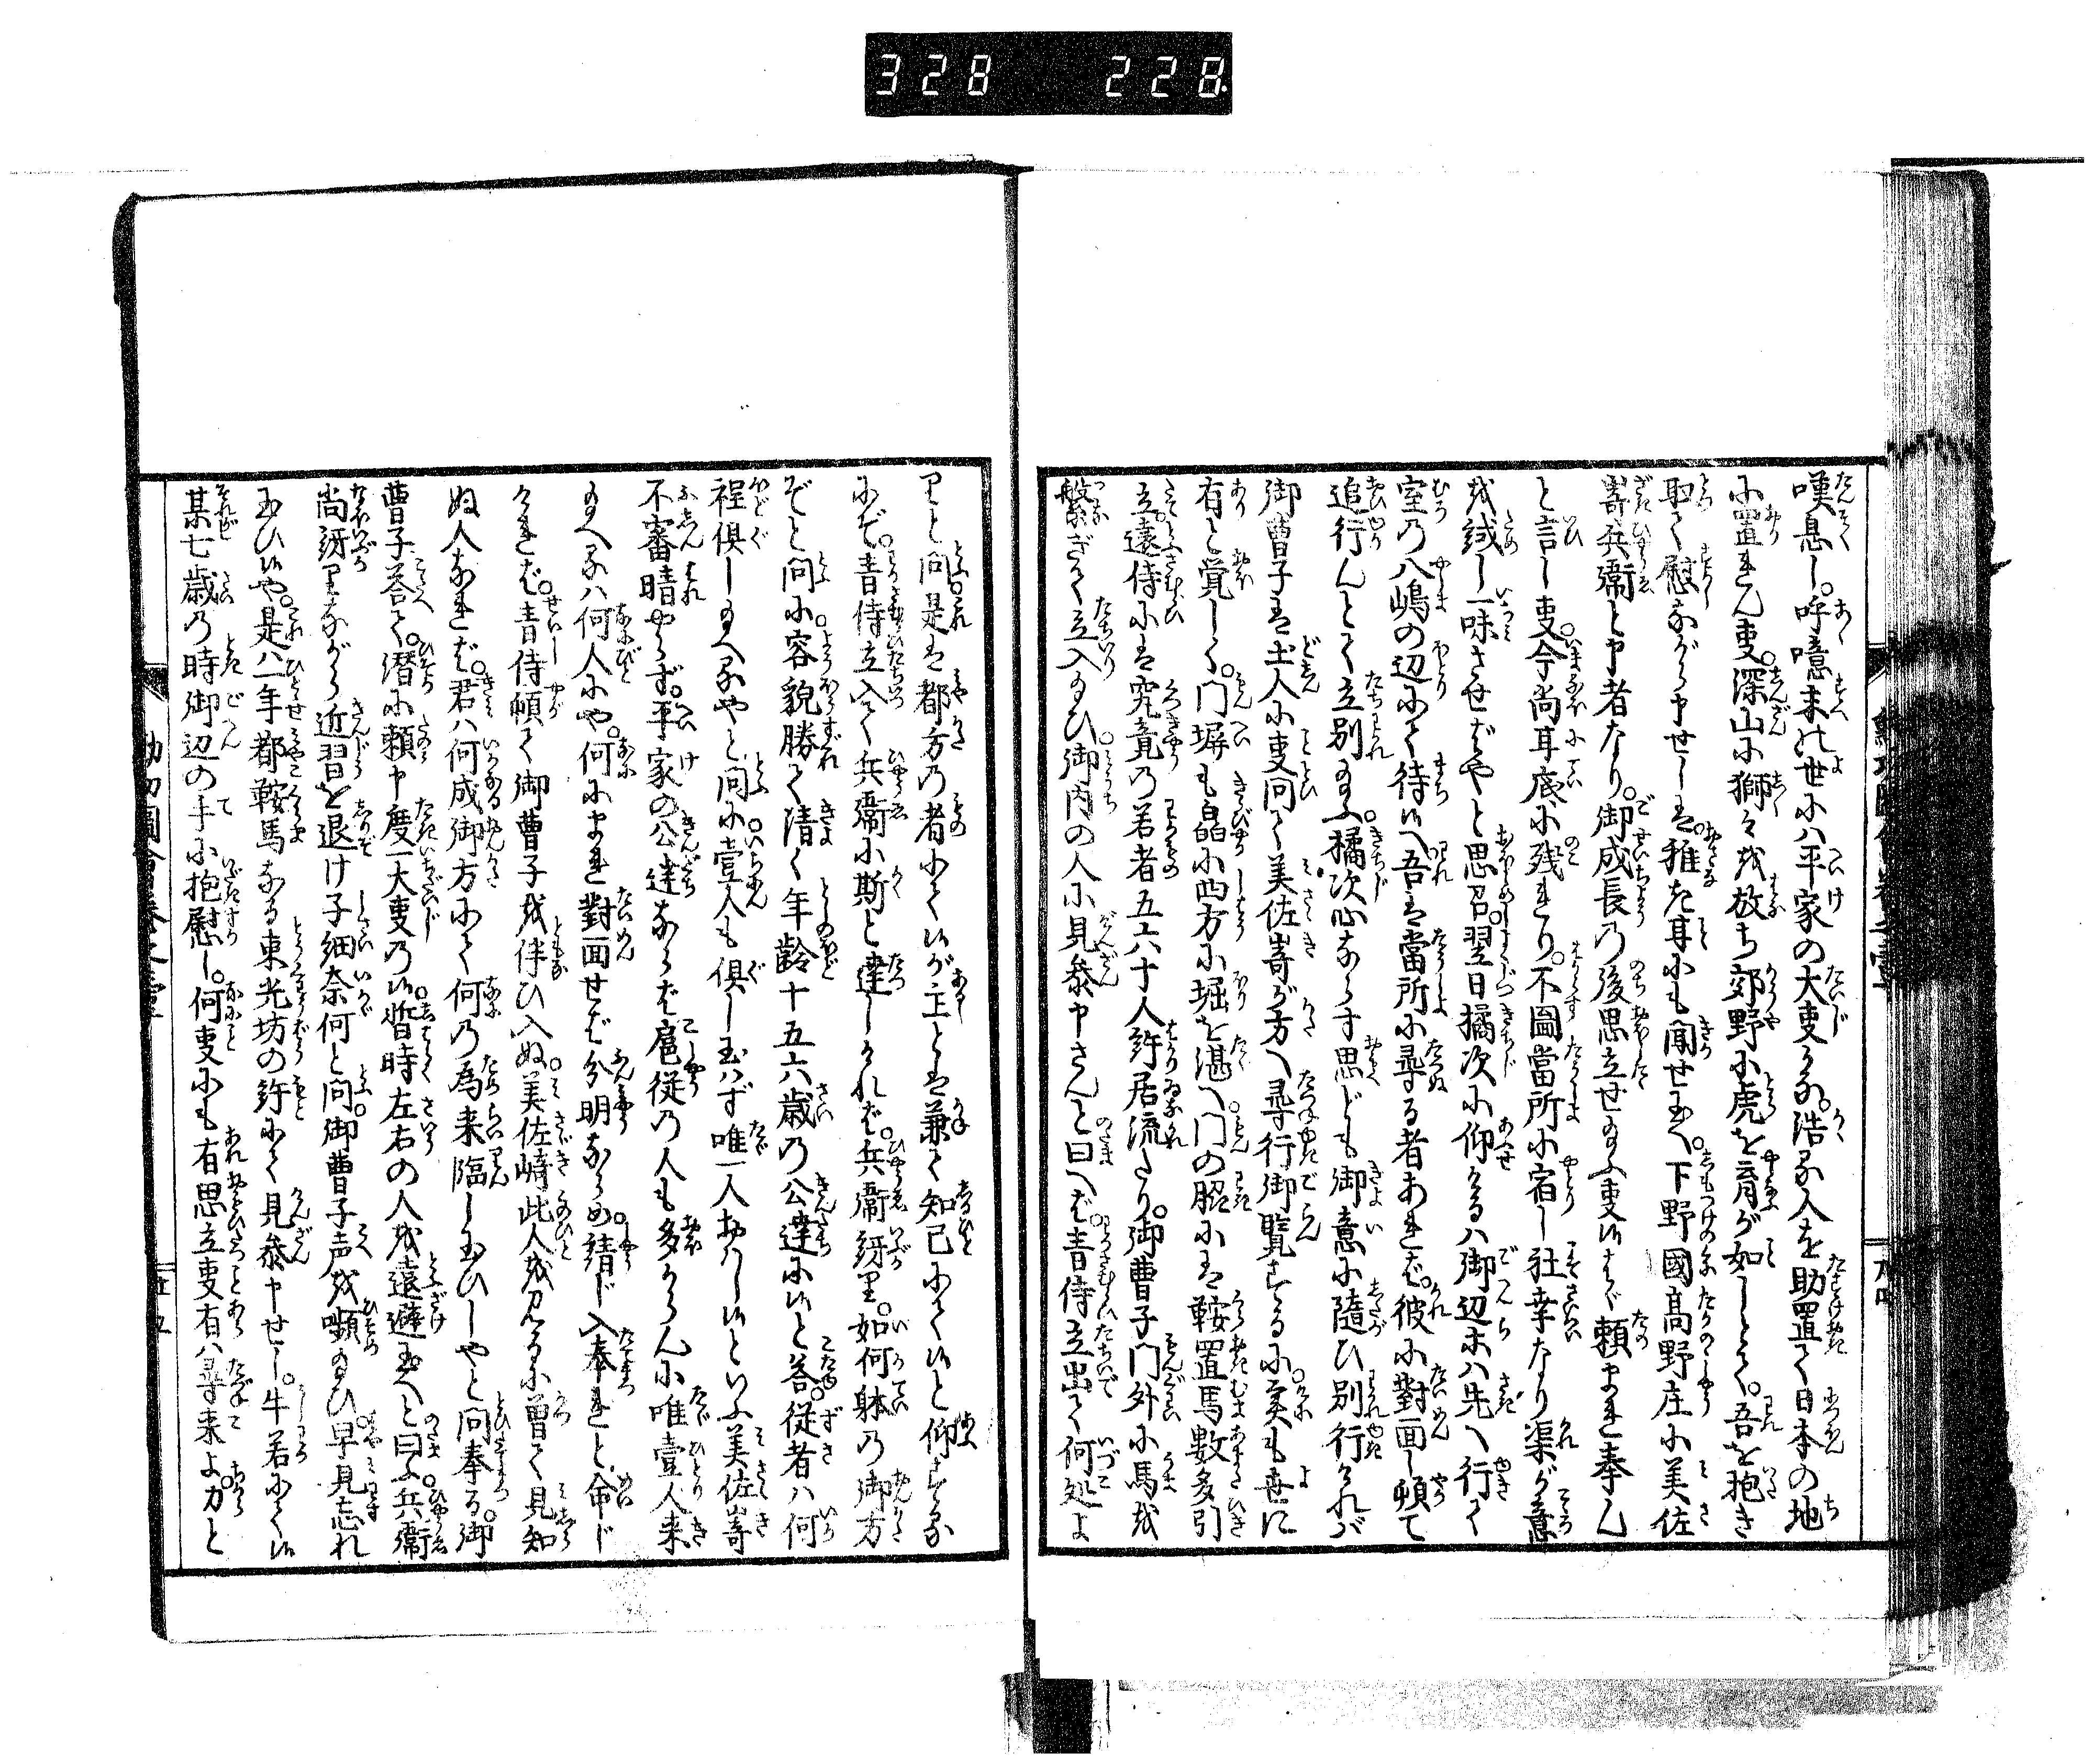 328 228
嘆息し。呼噫末の世には平家の大事かな。浩る人を助置て日本の地
に置れん事。深山に獅々を放ち郊野に虎を育が如しとて。吾を抱き
取て慰ながら申せしは。稚き耳にも聞せ玉へ。下野國高野庄に美佐
嵜兵衞と申者なり。御成長の後思立せ玉ふ事候はゞ頼まれ奉ん
と言し事。今尚耳底に残れり。不圖當所に宿し社幸なり渠が意
を絨し一味させばやと思召。翌日橘次に仰けるは御辺ホハ先へ行て
室の八嶋の辺にて待候へ吾は當所に尋る者あれば。彼に對面し頓て
追行んとて立別玉ふ。橘次心ならず思ども御意に隨ひ別行ければ
御曹子は土人に事問て美佐嵜が方へ尋行御覧ずるに。実も世に
有と覚しく。門塀も皛に四方に堀を湛へ門の脇には鞍置馬數多引
立。遠侍には究竟の若者五六十人許居流たり。御曹子門外に馬を
繫ぎて立入玉ひ。御内の人に見参申さんと曰へば。青侍立出て何処よ
りと問。是は都方の者にて候が主とは兼て知己にて候と仰ずる
にぞ。青侍立入て兵衞に斯と達しければ。兵衞訝り。如何躰の御方
ぞと問に。容貌勝て清く年齢十五六歳の公達に候と答。従者ハ何
程倶し玉へるやと問に。壹人も倶し玉はず唯一人おはし候といふ美佐嵜
不審晴やらず。平家の公達ならば扈従の人も多からんに唯壹人来
玉へるハ何人にや。何にまれ對面せば分明ならめ。請じ入奉れと命じ
ければ。青侍頓て御曹子を伴ひ入ぬ。美佐﨑此人を見るに曽て見知
ぬ人なれば。君ハ何成御方にて何の為来臨し玉ひしやと問奉る。御
曹子答て。潜に頼申度一大事の候。暫時左右の人を遠避玉へと曰ふ。兵衞
尚訝りながら近習を退け子細奈何と問。御曹子声を顰玉ひ。早見忘れ
玉ひ候や。是ハ一年都鞍馬なる東光坊の許にて見参申せし。牛若にて候
某七歳の時御辺の手に抱慰し。何事にも有思立事有ハ尋来よ。力と